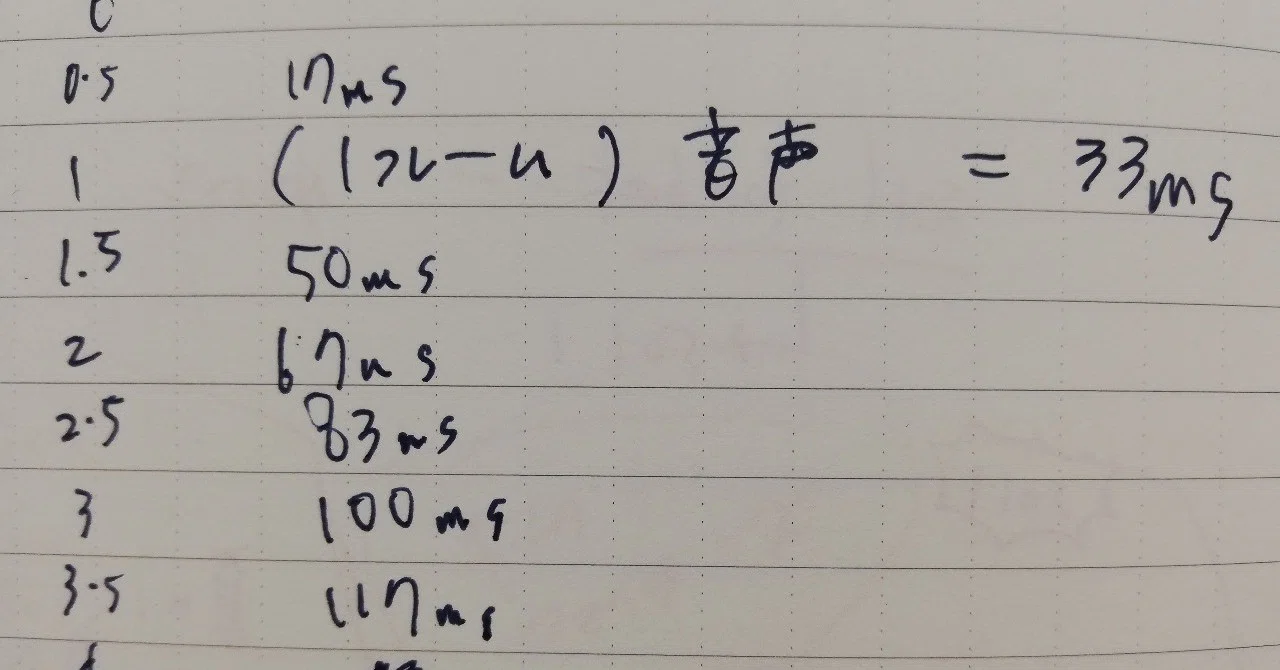 0.5 17ms
1 (1フレーム) 音声 = 33ms
1.5 50ms
2 67ms
2.5 83ms
3 100ms
3.5 117ms